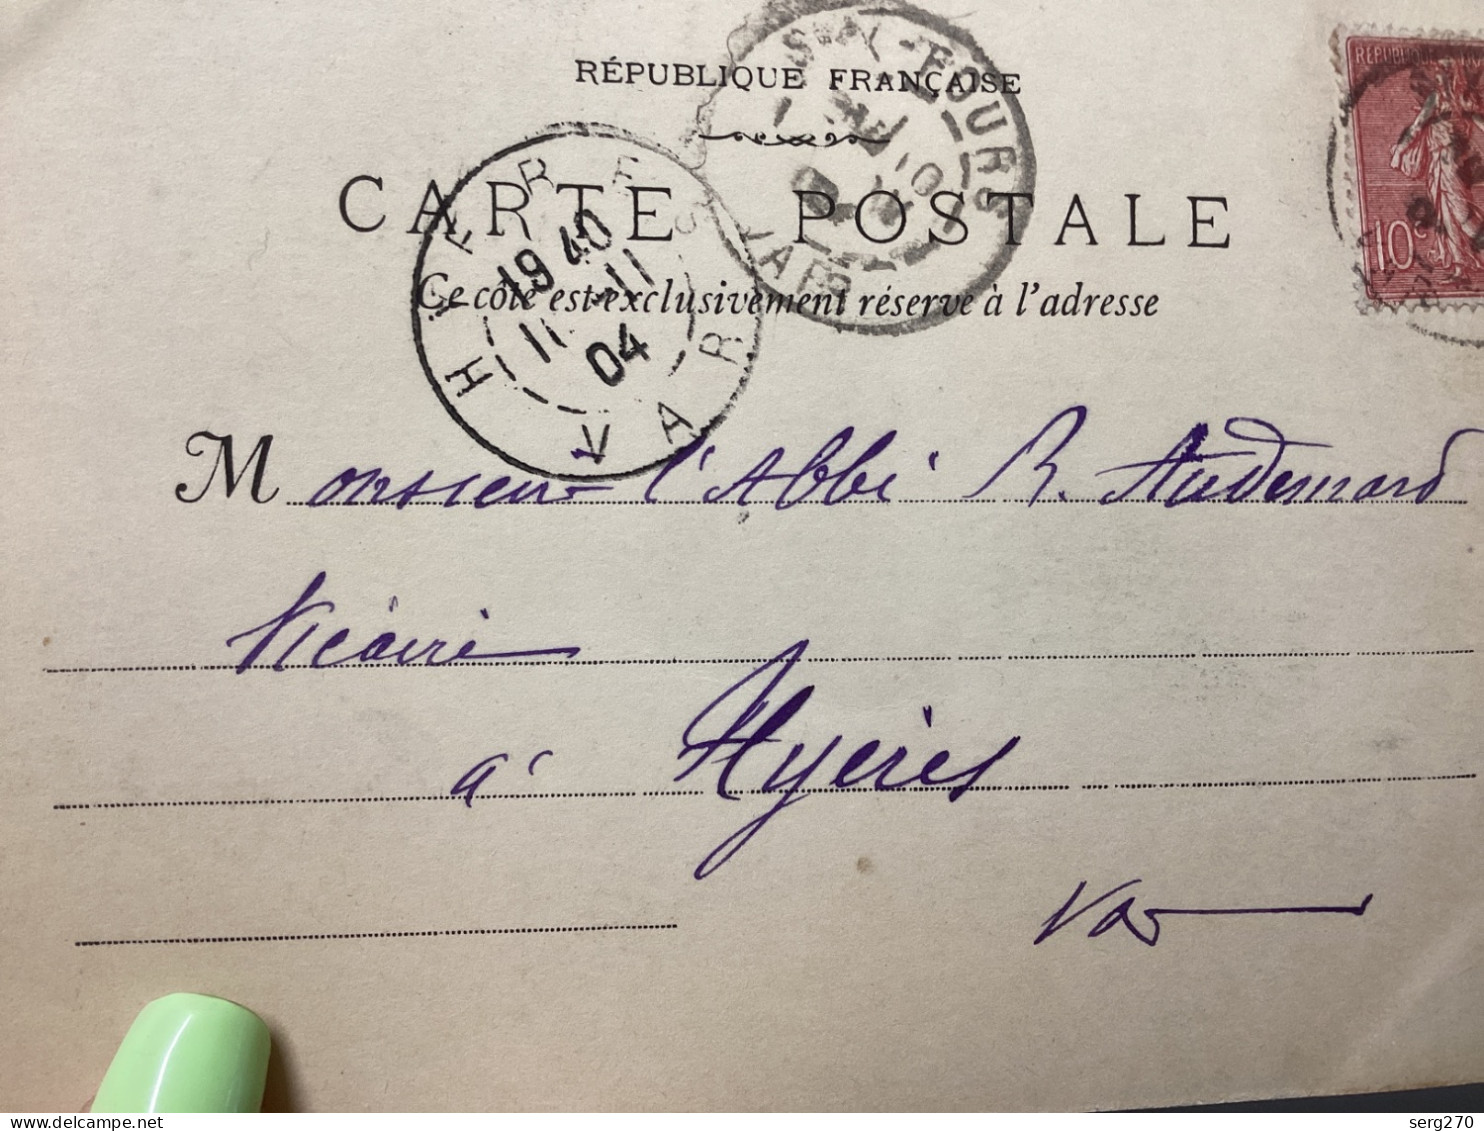 RÉPUBLIQUE FRANÇAISE
CARTE POSTALE
Ce côté est exclusivement réservé à l'adresse
SIX-FOURS
VAR
HYERES
19 40
11 -11
04
VAR
RÉPUBLIQUE
10c
Monsieur l'Abbé R. Audemard
Vicaire
à Hyères
Var
serg270